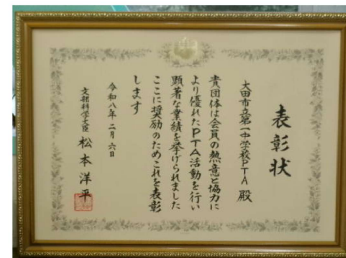 表彰状
大田市立第一中学校PTA 殿
貴団体は会員の熱意と協力に
より優れたPTA活動を行い
顕著な業績を挙げられました
ここに奨励のためこれを表彰
します
令和八年二月六日
文部科学大臣 松本洋平